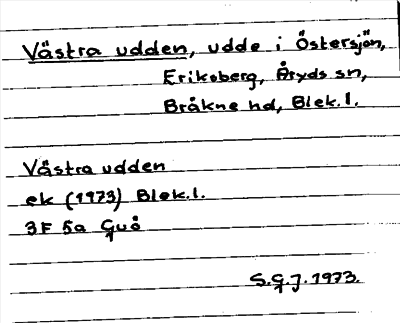 Västra udden, udde i Östersjön,
Eriksberg, Åryds sn,
Bråkne hd, Blek.l.
Västra udden
ek (1973) Blek.l.
3F 5a Guö
S.G.J. 1973.